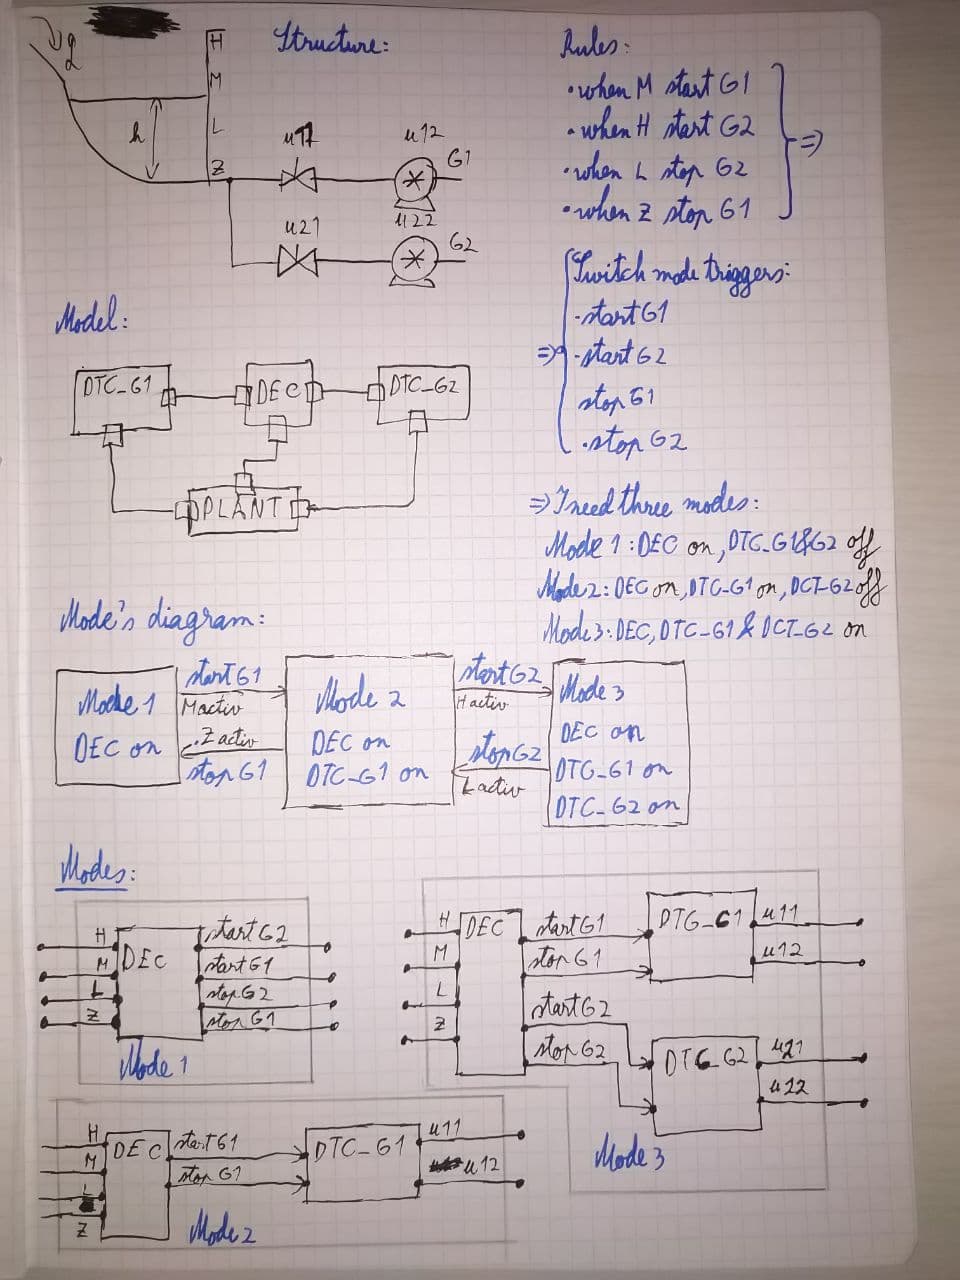 q
H
M
L
Z
h
Structure:
u11
u12
G1
u21
u22
G2
Rules:
• when M start G1
• when H start G2
• when L stop G2
• when Z stop G1
⇒
Switch mode triggers:
- start G1
⇒ - start G2
stop G1
. stop G2
Model:
DTC_G1
DEC
DTC_G2
PLANT
⇒ I need three modes:
Mode 1: DEC on, DTC_G1&G2 off
Mode2: DEC on, DTC-G1 on, DCT-G2 off
Mode3: DEC, DTC-G1 & DCT-G2 on
Mode's diagram:
Mode 1
DEC on
start G1
M activ
Z activ
stop G1
Mode 2
DEC on
DTC-G1 on
start G2
H activ
stop G2
L activ
Mode 3
DEC on
DTC-G1 on
DTC-G2 on
Modes:
H
M
L
Z
DEC
start G2
start G1
stop G2
stop G1
Mode 1
H
M
L
Z
DEC
start G1
stop G1
start G2
stop G2
DTC_G1
u11
u12
DTC_G2
u21
u22
Mode 3
H
M
L
Z
DEC
start G1
stop G1
DTC-G1
u11
u12
Mode 2